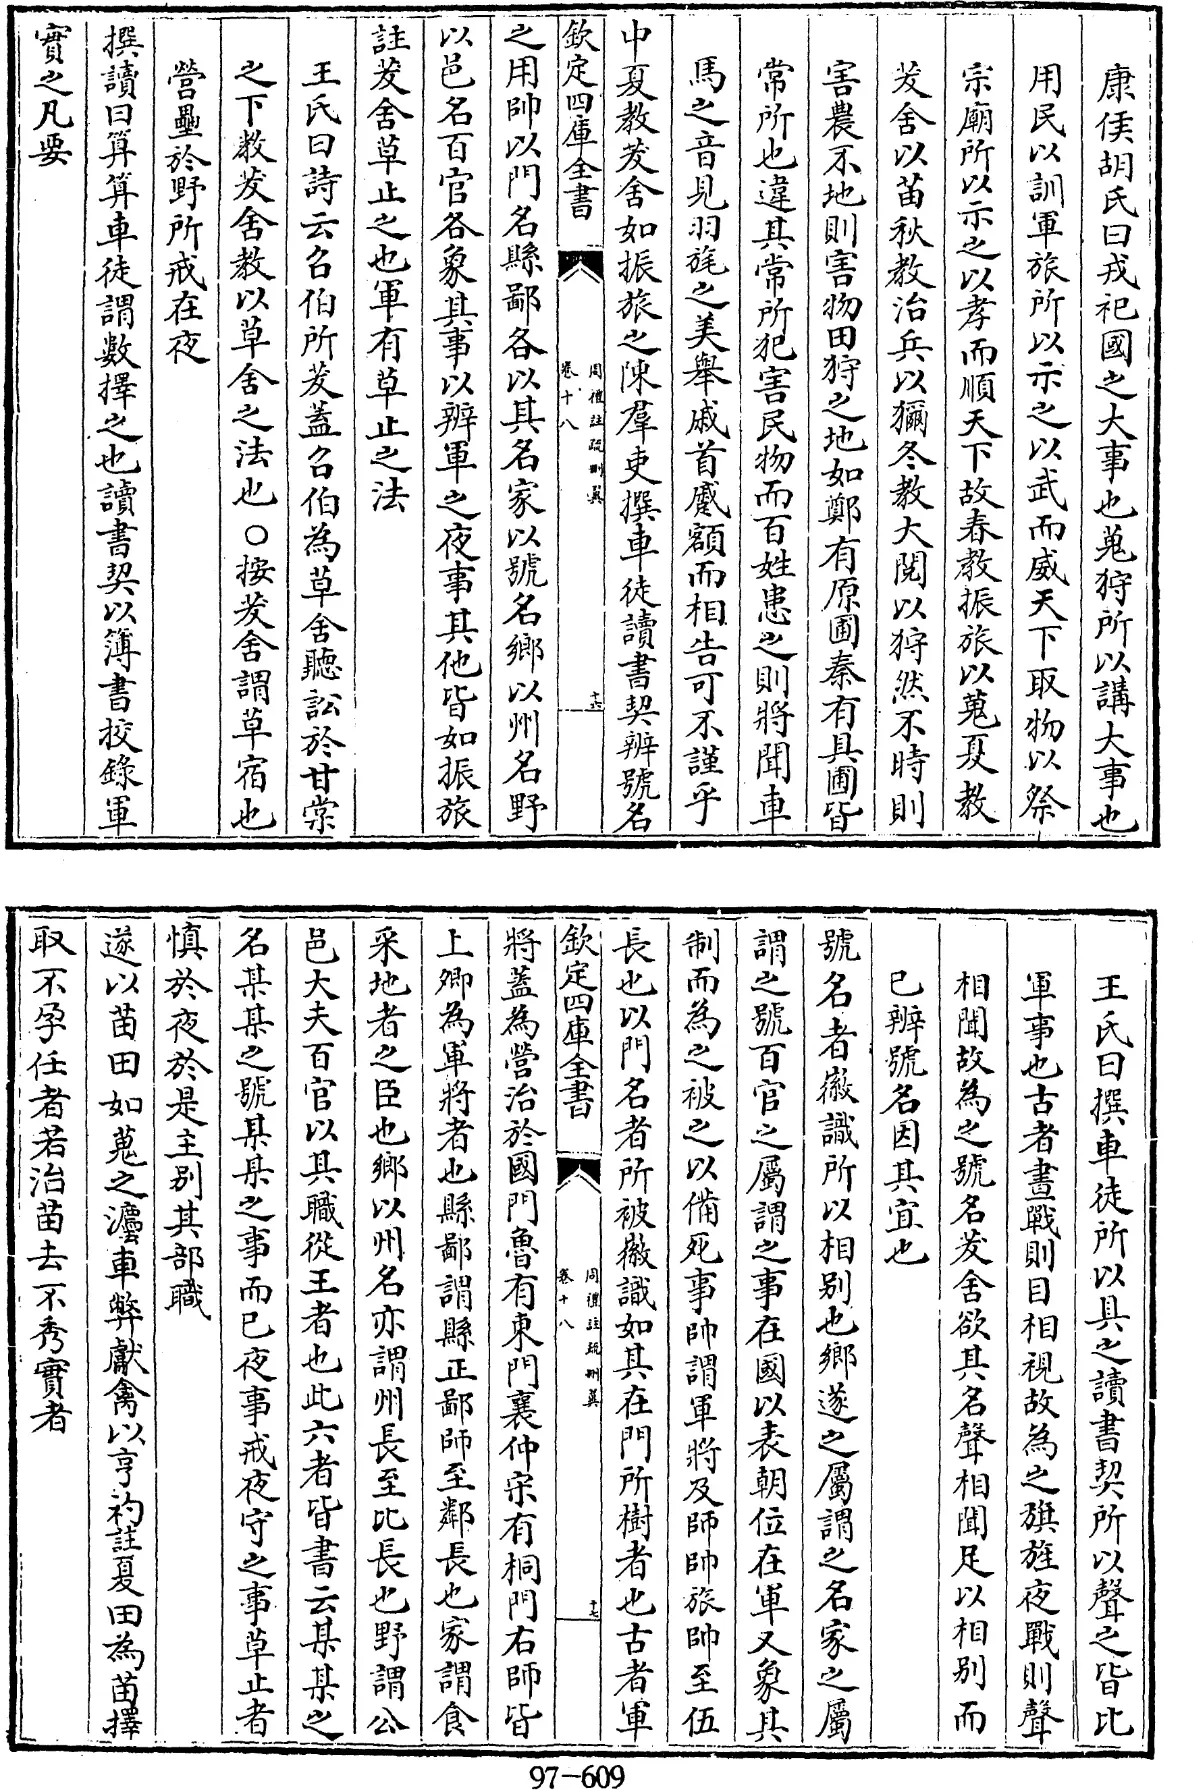 康侯胡氏曰戎祀國之大事也蒐狩所以講大事也
用民以訓軍旅所以示之以武而威天下取物以祭
宗廟所以示之以孝而順天下故春教振旅以蒐夏教
茇舍以苗秋教治兵以獮冬教大閱以狩然不時則
害農不地則害物田狩之地如鄭有原圃秦有具圃皆
常所也違其常所犯害民物而百姓患之則將聞車
馬之音見羽旄之美舉戚首蹙額而相告可不謹乎
中夏教茇舍如振旅之陳羣吏撰車徒讀書契辨號名
欽定四庫全書
周禮註疏刪翼
卷十八
十六
之用帥以門名縣鄙各以其名家以號名鄉以州名野
以邑名百官各象其事以辨軍之夜事其他皆如振旅
註茇舍草止之也軍有草止之法
王氏曰詩云召伯所茇蓋召伯為草舍聽訟於甘棠
之下教茇舍教以草舍之法也○按茇舍謂草宿也
營壘於野所戒在夜
撰讀曰算算車徒謂數擇之也讀書契以簿書校錄軍
實之凡要
王氏曰撰車徒所以具之讀書契所以聲之皆比
軍事也古者晝戰則目相視故為之旗旌夜戰則聲
相聞故為之號名茇舍欲其名聲相聞足以相别而
已辨號名因其宜也
號名者徽識所以相别也鄉遂之屬謂之名家之屬
謂之號百官之屬謂之事在國以表朝位在軍又象其
制而為之被之以備死事帥謂軍將及師帥旅帥至伍
長也以門名者所被徽識如其在門所樹者也古者軍
欽定四庫全書
周禮註疏刪翼
卷十八
十七
將蓋為營治於國門魯有東門襄仲宋有桐門右師皆
上卿為軍將者也縣鄙謂縣正鄙師至鄰長也家謂食
采地者之臣也鄉以州名亦謂州長至比長也野謂公
邑大夫百官以其職從王者也此六者皆書云某某之
名某某之號某某之事而已夜事戒夜守之事草止者
慎於夜於是主别其部職
遂以苗田如蒐之灋車弊獻禽以享礿註夏田為苗擇
取不孕任者若治苗去不秀實者
97-609